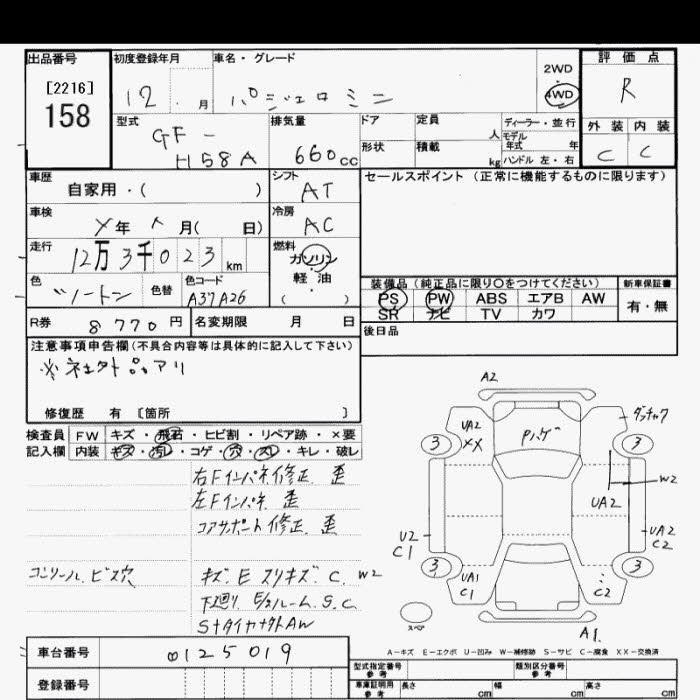 出品番号
[2216]
158
初度登録年月
12 . 月
車名・グレード
パジェロミニ
2WD
4WD
評価点
R
型式
GF-
H58A
排気量
660cc
ドア
形状
定員
人
積載
kg
ディーラー・並行
モデル
年式 年
ハンドル 左・右
外装 内装
C C
車歴
自家用・( )
シフト
AT
車検
年 月( 日)
冷房
AC
走行
12万3千023km
燃料
ガソリン
軽・油
( ・ )
色
ツートン
色替
色コード
A37A26
R券
8770円
名変期限 月 日
セールスポイント(正常に機能するものに限ります)
装備品(純正品に限り○をつけてください)
PS PW ABS エアB AW
SR ナビ TV カワ
新車保証書
有・無
後日品
注意事項申告欄(不具合内容等は具体的に記入して下さい)
修復歴 有 [箇所 ]
検査員
記入欄
FW キズ・飛石・ヒビ割・リペア跡・×要
内装 キズ・汚レ・コゲ・穴・スレ・キレ・破レ
右Fインパネ修正 歪
左Fインパネ 歪
コアサポート修正 歪
コンソール ビス穴
キズ.E スリキズ.C. W2
下廻り.E/ルーム.S.C
S+タイヤナットAW
A2
UA2
XX
Pハゲ
3
3
W2
UA2
U2
C1
UA2
C2
3
3
UA1
C1
C2
スペア
A1
A-キズ E-エクボ U-凹み W-補修跡 S-サビ C-腐食 XX-交換済
車台番号
0125019
登録番号
型式指定番号
参考
類別区分番号
参考
車庫証明用
参考
長さ cm
幅 cm
高さ cm